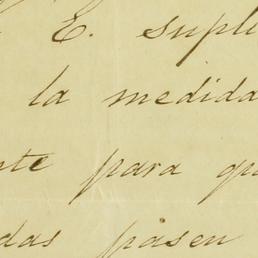 E. supli
la medida
nte para qu
das pasen